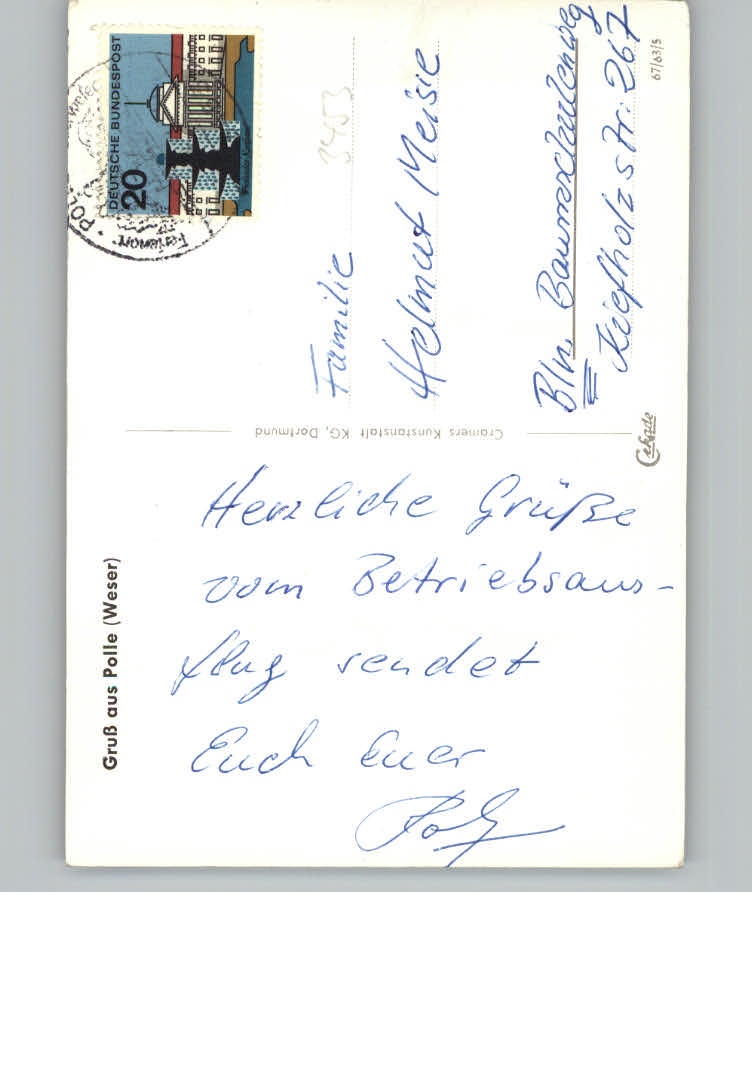 Gruß aus Polle (Weser)
Herzliche Grüße
vom Betriebsaus-
flug sendet
Euch Euer
Cramers Kunstanstalt KG, Dortmund
Cekade
DEUTSCHE BUNDESPOST
20
Ferienort
3453
Familie
Helmut Meisie
Bln. Baumschulenweg
Kiefholzstr. 267
67/63/5